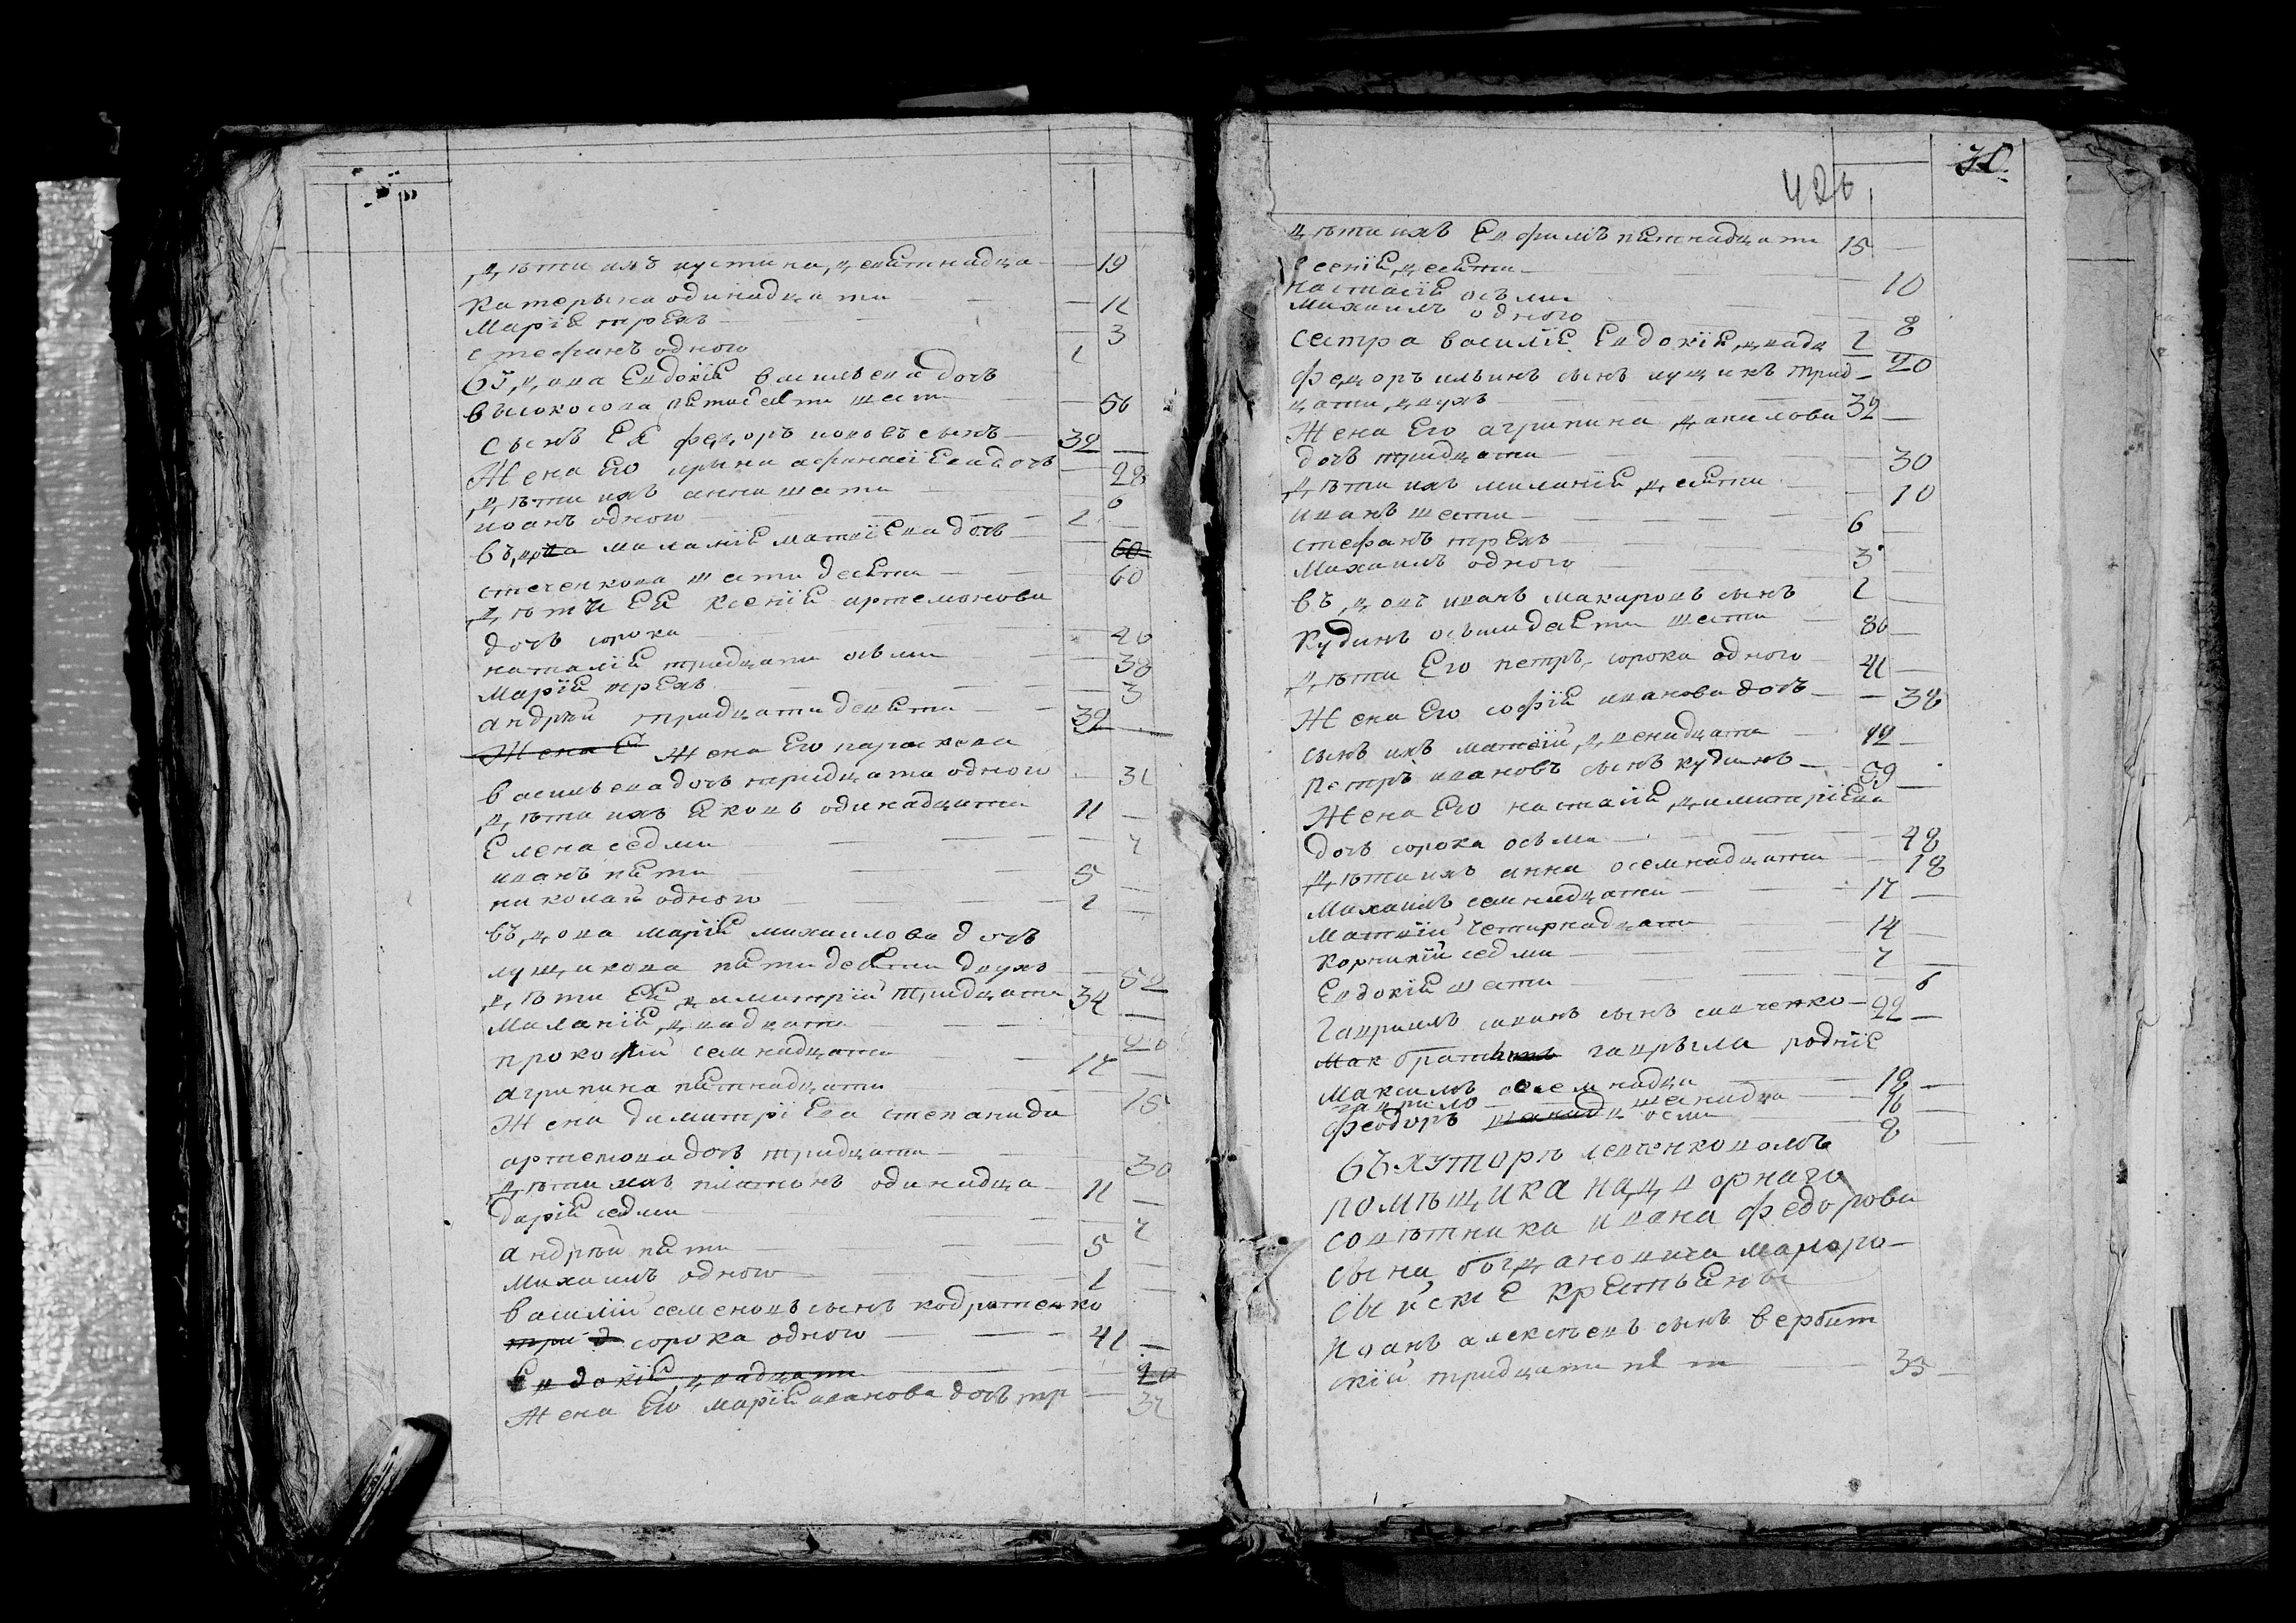 дѣти ихъ иустина, девятнадца 19
катерына одинадцати 11
марія трехъ 3
стефанъ одного 1
въдова евдокія васильева дочь
высокосова пятидесяти шести 56
сынъ ея федоръ иововъ сынъ 32
жена его ирына афанасіева дочь 28
дѣти ихъ анна шести 6
иоанъ одного 1
въдова маланія матвіева дочь 60
стеченкова шестидесяти 60
дѣти ея ксенія артемонова
дочь сорока 40
наталія тридцати осьми 38
марія трехъ 3
андрей тридцати девяти 39
Жена Е жена его параскева
васильева дочь тридцати одного 31
дѣти ихъ яковъ одинадцати 11
Елена седми 7
иванъ пяти 5
николай одного 1
въдова марія михаилова дочь
лущикова пятидесяти двухъ 52
дѣти ея димитрій тридцати 34
маланія двадцати 20
прокопій семнадцати 17
агрипина пятнадцати 15
жена димитріева степанида
артемова дочь тридцати 30
дѣти ихъ платонъ одинадца 11
дарія седми 7
андрей пяти 5
михаилъ одного 1
василій семеновъ сынъ кодратенко
три д сорока одного 41
Евдокія двадцати 20
жена его марія иванова дочь тр 37
426 30.
дѣти ихъ Евфимъ пятнадцати 15
ксенія десяти 10
настасія осьми 8
михаилъ одного 1
сестра василіе Евдокія двадц 20
федоръ ильинъ сынъ лущикъ трид-
цати двухъ 32
жена его агрипина данилова
дочь тридцати 30
дѣти ихъ миланія десяти 10
иванъ шести 6
стефанъ трехъ 3
михаилъ одного 1
въдовъ иванъ макаровъ сынъ
кудинъ осьмидесяти шести 86
дѣти его петръ сорока одного 41
жена его софія иванова дочь 38
сынъ ихъ матвій двенадцати 12
петръ ивановъ сынъ кудинъ 59
жена его настасія димитріева
дочь сорока осьми 48
дѣти ихъ анна осемнадцати 18
михаилъ семнадцати 17
матвій четирнадцати 14
корнилій седми 7
Евдокія шести 6
гавриилъ савинъ сынъ савченко 22
мак братья гаврыла родніе
максимъ осемнадца 18
гаврило шенадца 16
феодоръ осми 8
въ хуторѣ левченковомъ
помѣщика надворнаго
совѣтника ивана федорова
сына богдановича маморо-
сыйскіе крестьяны
иоанъ алексѣевъ сынъ вербит
скій тридцати пят 35